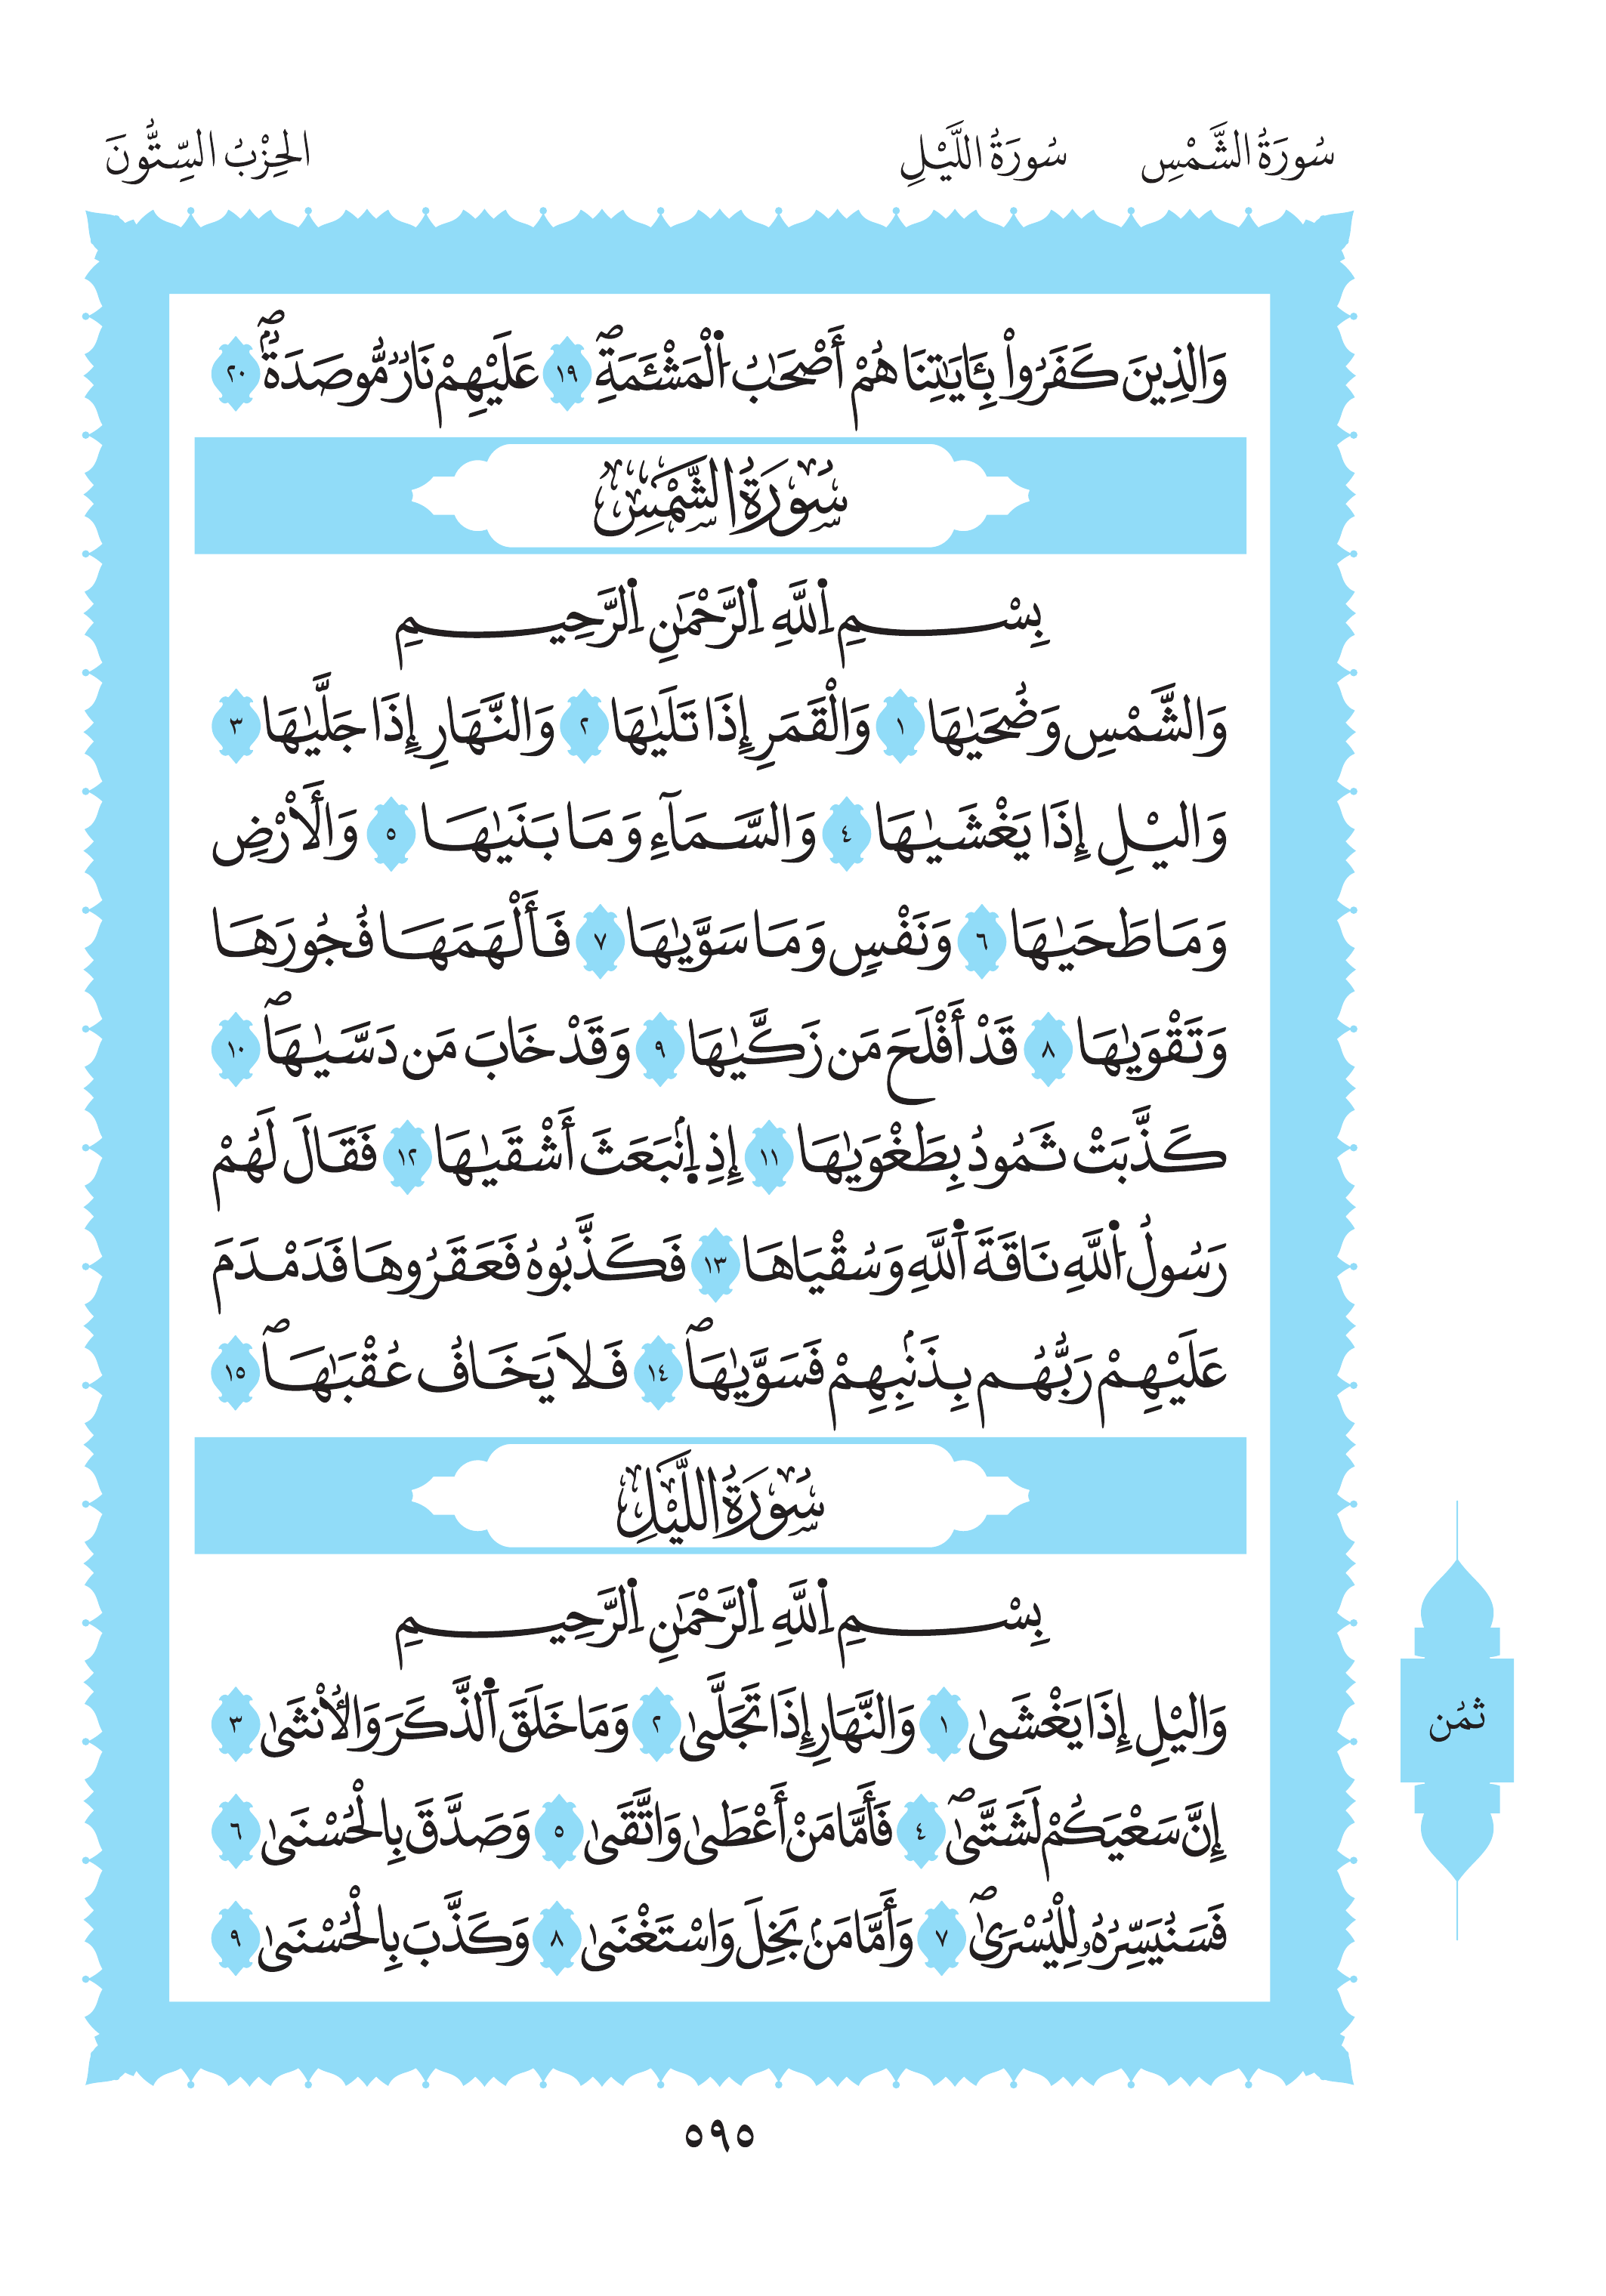 سُورَةُ الشَّمْسِ سُورَةُ اللَّيْلِ الحِزْبُ السِّتُّونَ
وَالذِينَ كَفَرُواْ بِـَٔايَٰتِنَا هُمْ أَصْحَٰبُ اُ۬لْمَشْـَٔمَةِۖ ١٩ عَلَيْهِمْ نَارٞ مُّوصَدَةُۢۖ ٢٠
سُورَةُ الشَّمْسِ
بِسْمِ اِ۬للَّهِ اِ۬لرَّحْمَٰنِ اِ۬لرَّحِيمِ
وَالشَّمْسِ وَضُحَيٰهَا ١ وَالْقَمَرِ إِذَا تَلَيٰهَا ٢ وَالنَّهَارِ إِذَا جَلَّيٰهَا ٣
وَاليْلِ إِذَا يَغْشَيٰهَا ٤ وَالسَّمَآءِ وَمَا بَنَيٰهَا ٥ وَالَارْضِ
وَمَا طَحَيٰهَا ٦ وَنَفْسٖ وَمَا سَوَّيٰهَا ٧ فَأَلْهَمَهَا فُجُورَهَا
وَتَقْوَيٰهَا ٨ قَدْ أَفْلَحَ مَن زَكَّيٰهَا ٩ وَقَدْ خَابَ مَن دَسَّيٰهَاۖ ١٠
كَذَّبَتْ ثَمُودُ بِطَغْوَيٰهَا ١١ إِذِ اِ۪نۢبَعَثَ أَشْقَيٰهَا ١٢ فَقَالَ لَهُمْ
رَسُولُ اُ۬للَّهِ نَاقَةَ اَ۬للَّهِ وَسُقْيَاهَا ١٣ فَكَذَّبُوهُ فَعَقَرُوهَا فَدَمْدَمَ
عَلَيْهِمْ رَبُّهُم بِذَنۢبِهِمْ فَسَوَّيٰهَاۖ ١٤ فَلَا يَخَافُ عُقْبَٰهَاۖ ١٥
سُورَةُ اللَّيْلِ
بِسْمِ اِ۬للَّهِ اِ۬لرَّحْمَٰنِ اِ۬لرَّحِيمِ
وَاليْلِ إِذَا يَغْشَىٰ ١ وَالنَّهَارِ إِذَا تَجَلَّىٰ ٢ وَمَا خَلَقَ اَ۬لذَّكَرَ وَالُانثَىٰ ٣
إِنَّ سَعْيَكُمْ لَشَتَّىٰۖ ٤ فَأَمَّا مَنْ أَعْطَىٰ وَاتَّقَىٰ ٥ وَصَدَّقَ بِالْحُسْنَىٰ ٦
فَسَنُيَسِّرُهُۥ لِلْيُسْرَىٰۖ ٧ وَأَمَّا مَنۢ بَخِلَ وَاسْتَغْنَىٰ ٨ وَكَذَّبَ بِالْحُسْنَىٰ ٩
ثُمُن
٥٩٥